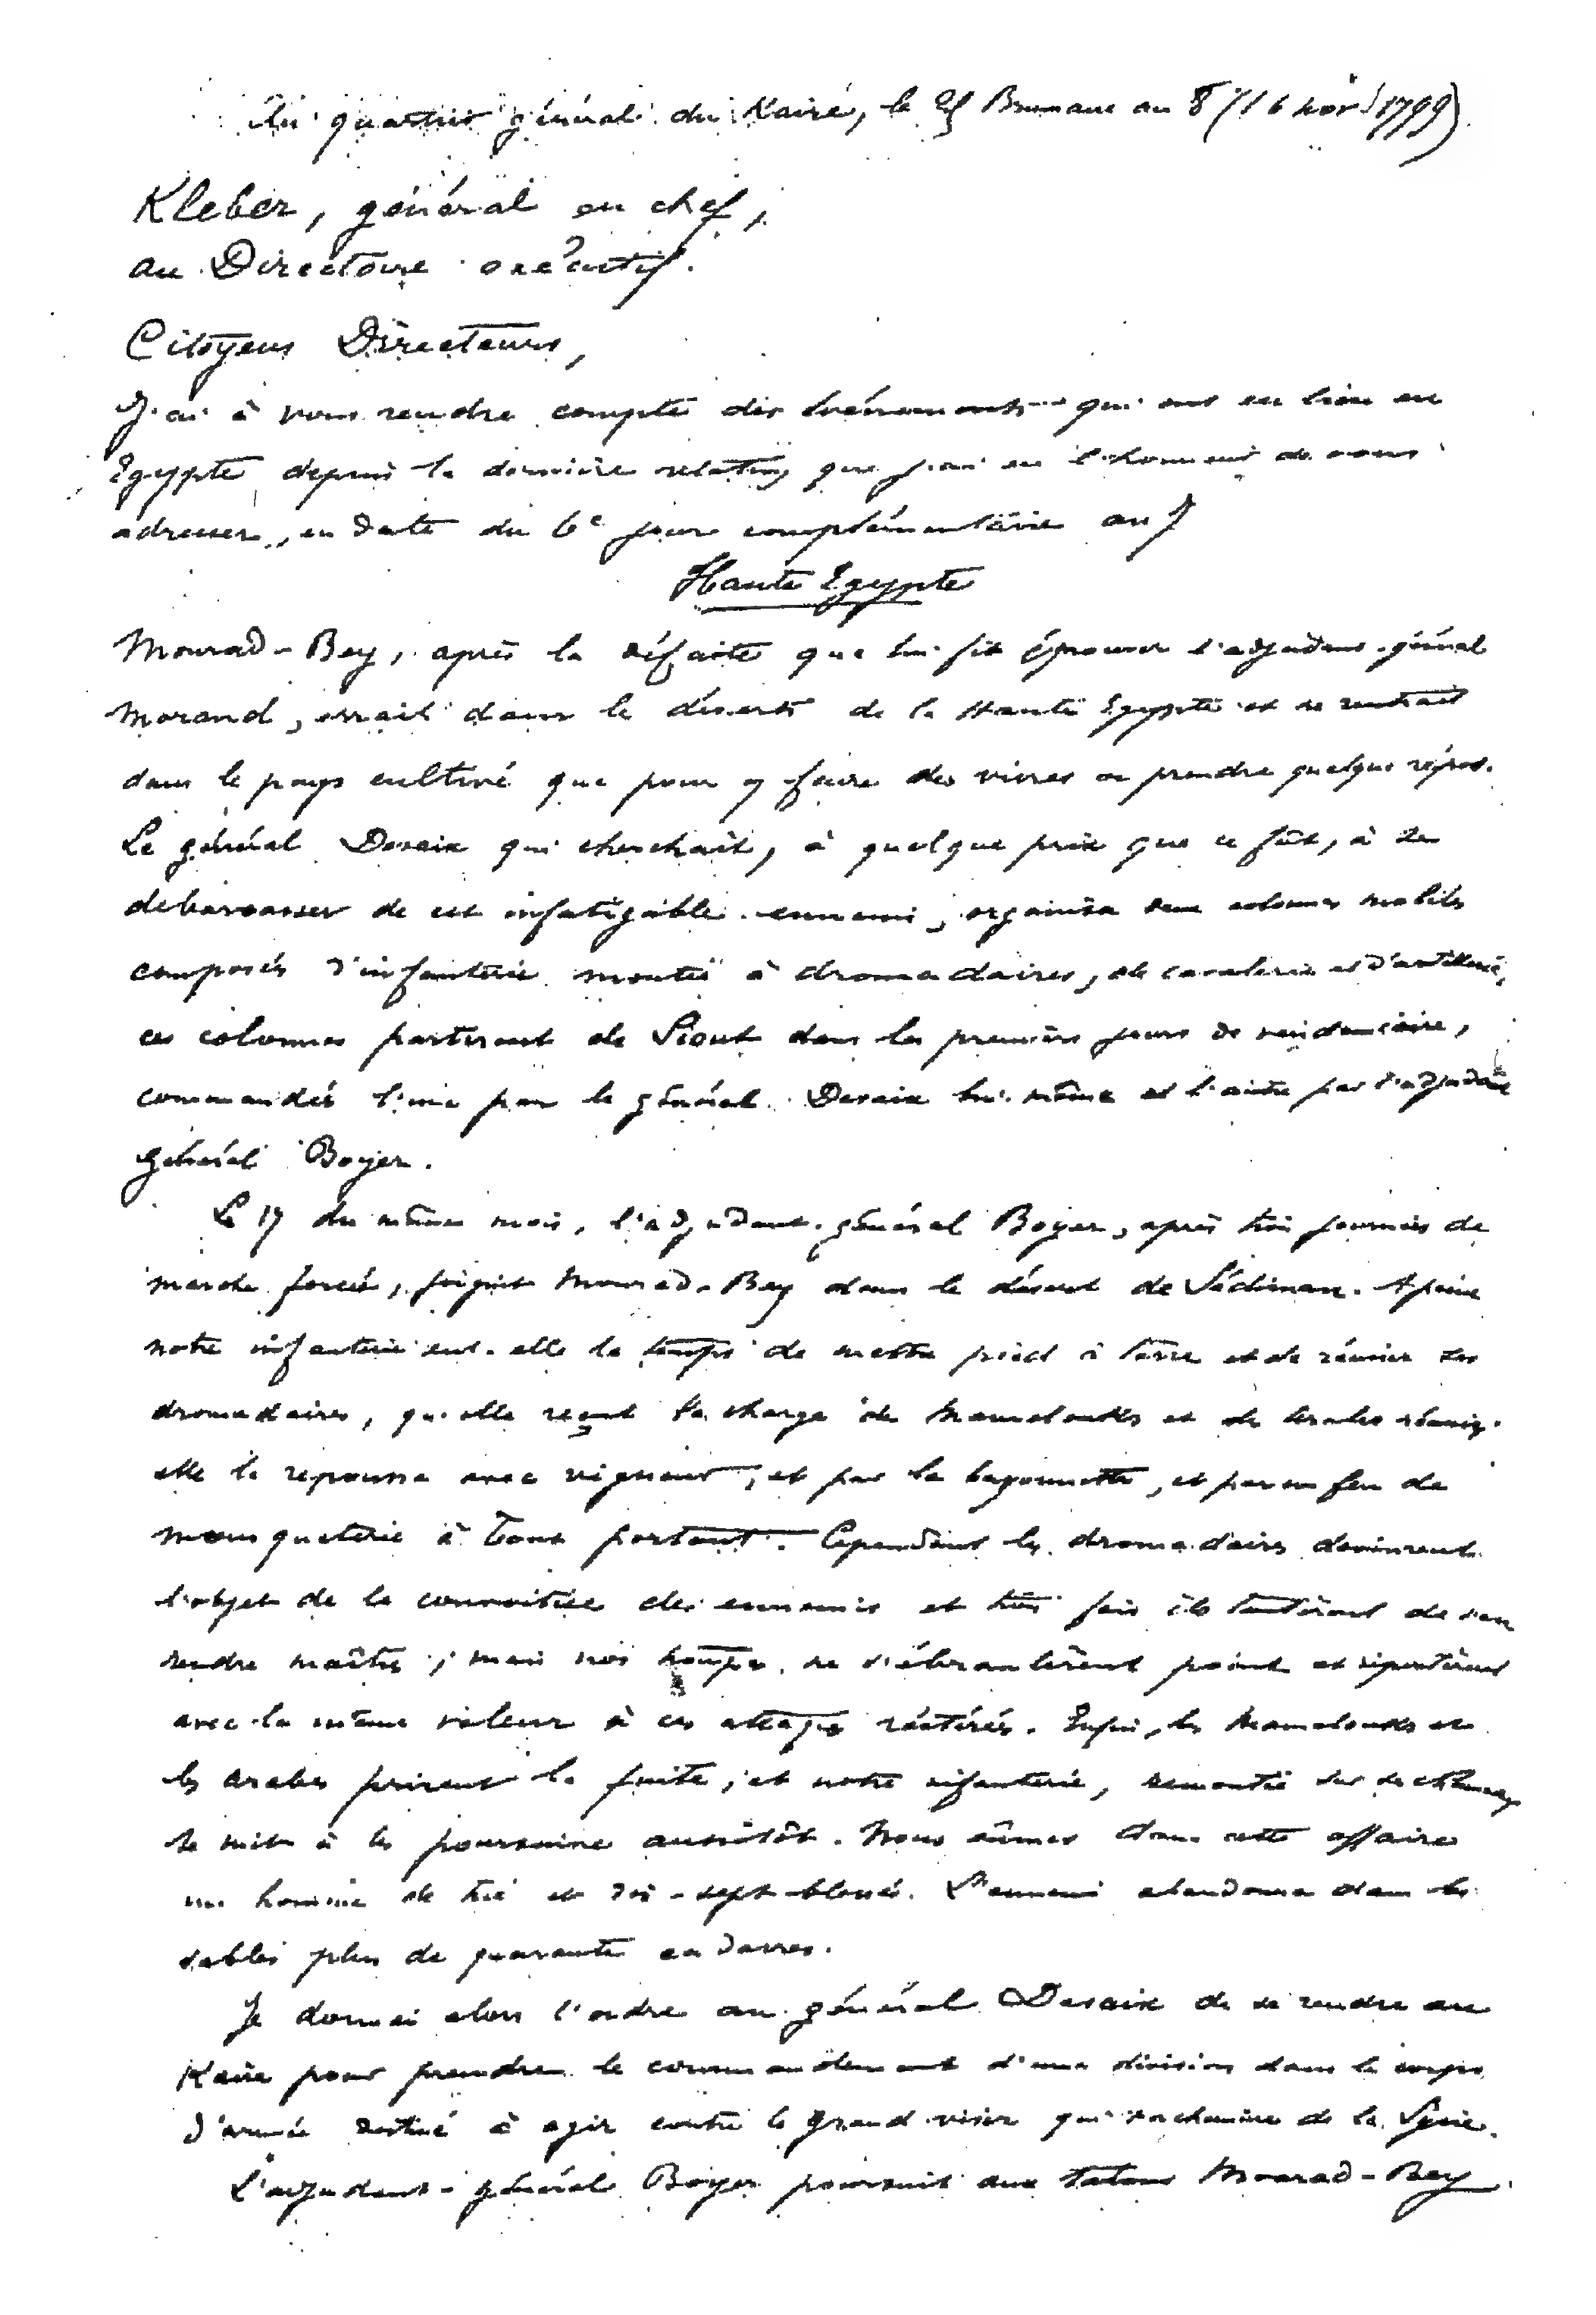 Au quartier général du Kaire, le 25 Brumaire an 8 (16 nov 1799)
Kleber, général en chef,
au Directoire exécutif.
Citoyens Directeurs,
J'ai à vous rendre compte des événements qui ont eu lieu en
Egypte depuis la dernière relation que j'ai eu l'honneur de vous
adresser, en date du 6e jour complémentaire an 7
Haute Egypte
Mourad-Bey, après la défaite que lui fit éprouver l'adjudant-général
Morand, errait dans le désert de la Haute Egypte et ne rentrait
dans le pays cultivé que pour y faire des vivres ou prendre quelque repos.
Le général Desaix qui cherchait, à quelque prix que ce fût, à se
debarrasser de cet infatigable ennemi, organisa deux colonnes mobiles
composées d'infanterie montée à dromadaires, de cavalerie et d'artillerie,
ces colonnes partirent de Siout dans les premiers jours de vendémiaire,
commandées l'une par le général Desaix lui-même et l'autre par l'adjudant
général Boyer.
Le 17 du même mois, l'adjudant-général Boyer, après trois journées de
marche forcée, joignit Mourad-Bey dans le désert de Sédiman. A peine
notre infanterie eut-elle le temps de mettre pied à terre et de réunir ses
dromadaires, qu'elle reçut la charge de Mamelouks et de Arabes réunis.
elle la repoussa avec vigueur, et par la bayonnette, et par un feu de
mousqueterie à bout portant. Cependant les dromadaires devinrent
l'objet de la convoitise des ennemis et trois fois ils tentèrent de s'en
rendre maîtres; mais nos troupes ne s'ébranlèrent point et ripostèrent
avec la même valeur à ces attaques réitérées. Enfin, les Mamelouks et
les Arabes prirent la fuite, et notre infanterie, remontée sur ses chameaux
se mit à les poursuivre aussitôt. Nous eûmes dans cette affaire
un homme de tué et dix-sept blessés. L'ennemi abandonna dans les
sables plus de quarante cadavres.
Je donnai alors l'ordre au général Desaix de se rendre au
Kaire pour prendre le commandement d'une division dans le corps
d'armée destiné à agir contre le grand-visir qui s'achemine de la Syrie.
L'adjudant-général Boyer poursuit aux talons Mourad-Bey